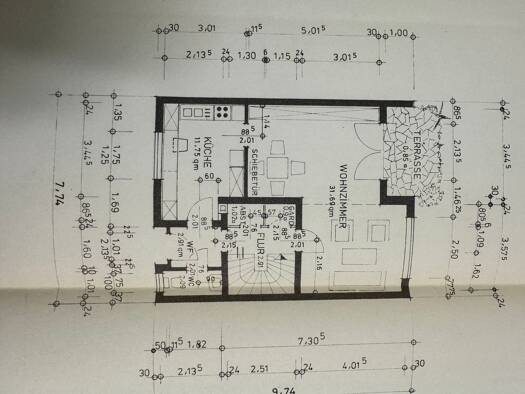 30 3,01 11⁵ 5,01⁵ 30 1,00
2,13⁵ 24 1,30 6 1,15 24 3,01⁵
7,74
24 3,44⁵ 24 1,60 10 1,01 24
1,35 1,75 1,25 1,69 1,01 2,13⁵
KÜCHE
11,75 qm
60
88⁵
2,01
1,14
SCHIEBETÜR
WOHNZIMMER
31,69 qm
TERRASSE
ABST.
FLUR
WF
2,91 qm
WC
88⁵
2,15
88⁵
2,01
2,16
86⁵ 2,13⁵ 1,46 2,50
30 3,09 1,62
24 3,44⁵ 3,57⁵ 24
50 11⁵ 1,82 7,30⁵
30 2,13⁵ 24 2,51 24 4,01⁵ 30
9,74